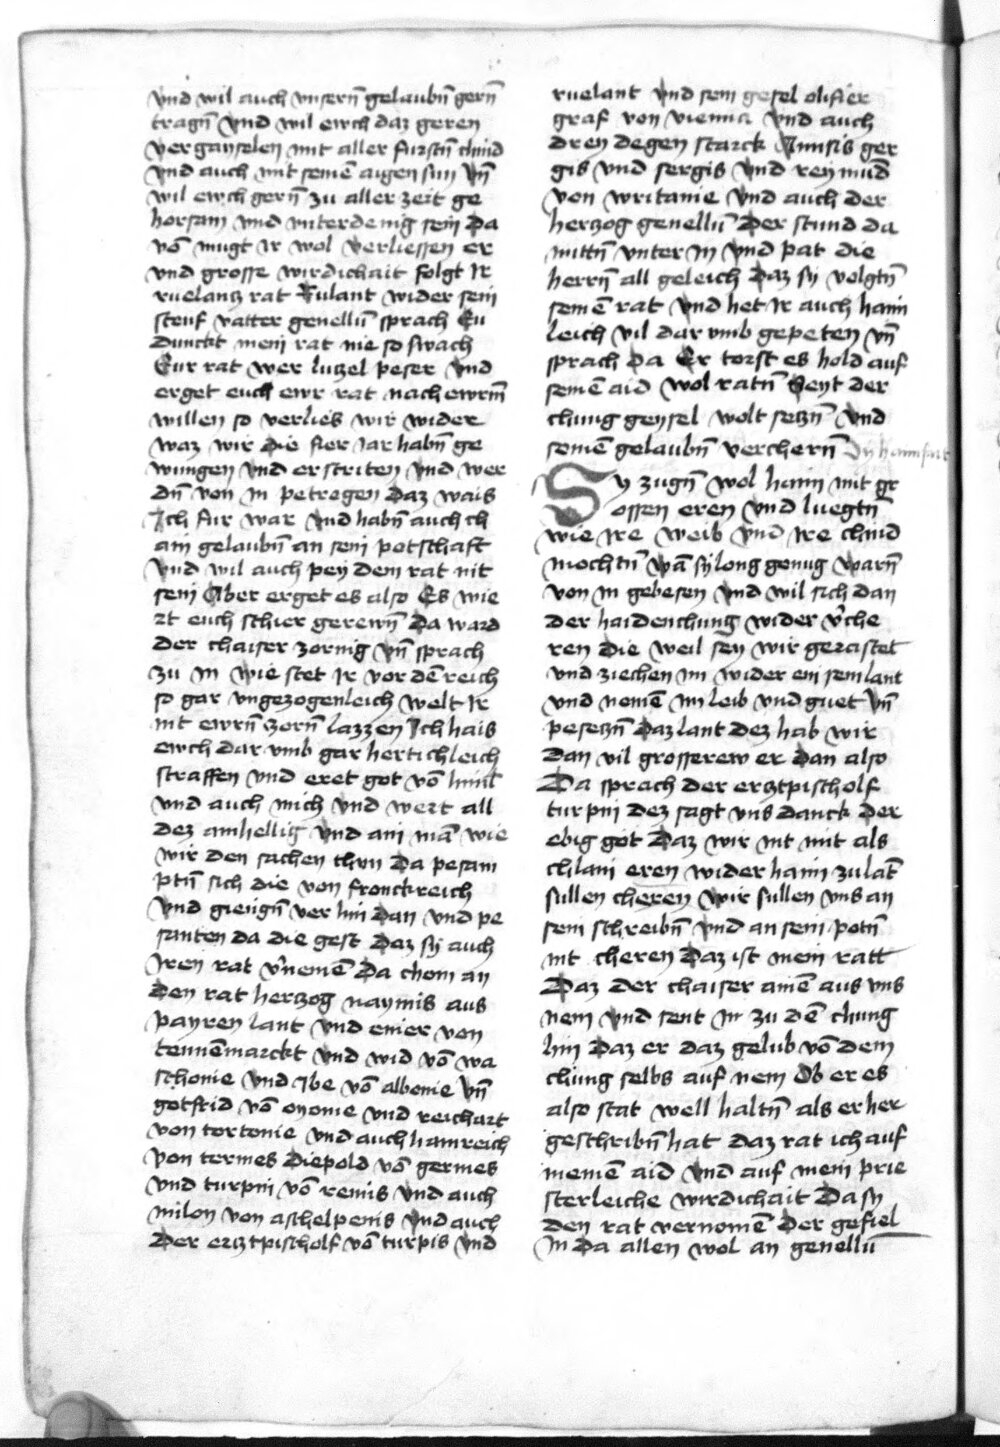 vnd wil auch vnsern̄ gelaubn̄ gern̄
tragn̄ vnd wil ewch daz geren
vergayselen mit aller furstn̄ chind
vnd auch mit seinē aigen sun vn̄
wil ewch gern̄ zu aller zeit ge
horsam vnd vnterdenig sein da
vō mugt ir wol verliessen er
vnd grosse wirdichait folgt ir
ruelantz rat Rulant wider sein
steuf vatter genellū sprach Eu
dunckt mein rat nie so swach
Eur rat wer luczel peser vnd
erget euch ewr rat nach ewrm̄
willen so verlies wir wider
waz wir die fier iar habn̄ ge
wungen vnd erstriten vnd wer
dn̄ von in petregen daz wais
Ich fur war vnd habn̄ auch ch
ain gelaubn̄ an sein potschaft
vnd wil auch pey dem rat nit
sein Aber erget es also Es wie
rt euch schier gerewn̄ Da ward
der chaiser zornig vn̄ sprach
zu in wie stet ir vor dē reich
so gar vngezogenleich welt ir
nit ewrn̄ zorn̄ lazzen Ich hais
ewch dar vmb gar hertichleich
straffen vnd eret got vō himl
vnd auch mich vnd wert all
dez ainhellig vnd ain mā wie
wir den sachen thun Da pesam
ptn̄ sich die von fronckreich
vnd giengn̄ ver hin dan vnd pe
santen da die gest daz sy auch
iren rat v̄nemē Da chom an
den rat herczog naymis aus
payren lant vnd enier von
tennēmarckt vnd wid vō wa
schonie vnd ibe vō albenie vn̄
gotfrid vō onomie vnd reichart
von tortonie vnd auch hainreich
von termes diepold vō germes
vnd turpin vō remis vnd auch
milon von aschelpenis vnd auch
der ercztpischolf vō turpis vnd
ruelant vnd sein gesel olifier
graf von vienna vnd auch
dren degen starck Ansis ger
gis vnd sergis vnd reymūd
von writanie vnd auch der
herczog genellū Der stund da
mittn̄ vnter in vnd pat die
herrn̄ all geleich daz sy volgtn̄
seinē rat vnd het ir auch haim
leich vil dar vmb gepeten vn̄
sprach da Er torst es hold auf
seinē aid wol ratn̄ Seyt der
chung geysel wolt seczn̄ vnd
seinē gelaubn̄ verchern̄ Dy haimfart
Sy zugn̄ wol haim mit gr
ossen eren vnd luegtn̄
wie ire weib vnd ire chind
mochtn̄ wā sy long genug warn̄
von in gebesen vnd wil sich dan
der haidenchung wider v̄che
ren die weil sey wir gerastet
vnd ziechen im wider ein sein lant
vnd nemē im leib vnd guet vn̄
peseczn̄ daz lant dez hab wir
dan vil grosserew er dan also
Da sprach der ercztpischolf
turpin dez sagt vns danck der
ebig got daz wir nit mit als
chlain eren wider haim zu lāt
sullen cheren wir sullen vns an
sein schreibn̄ vnd an sein potn̄
nit cheren daz ist mein ratt
Daz der chaiser ainē aus vns
nem vnd sent in zu dē chung
hin daz er daz gelub vō dem
chūng selbs auf nem Ob er es
also stat well haltn̄ als er her
geschribn̄ hat daz rat ich auf
meinē aid vnd auf mein prie
sterleiche wirdichait Da sy
den rat vernomē der gefiel
in da allen wol an genellū